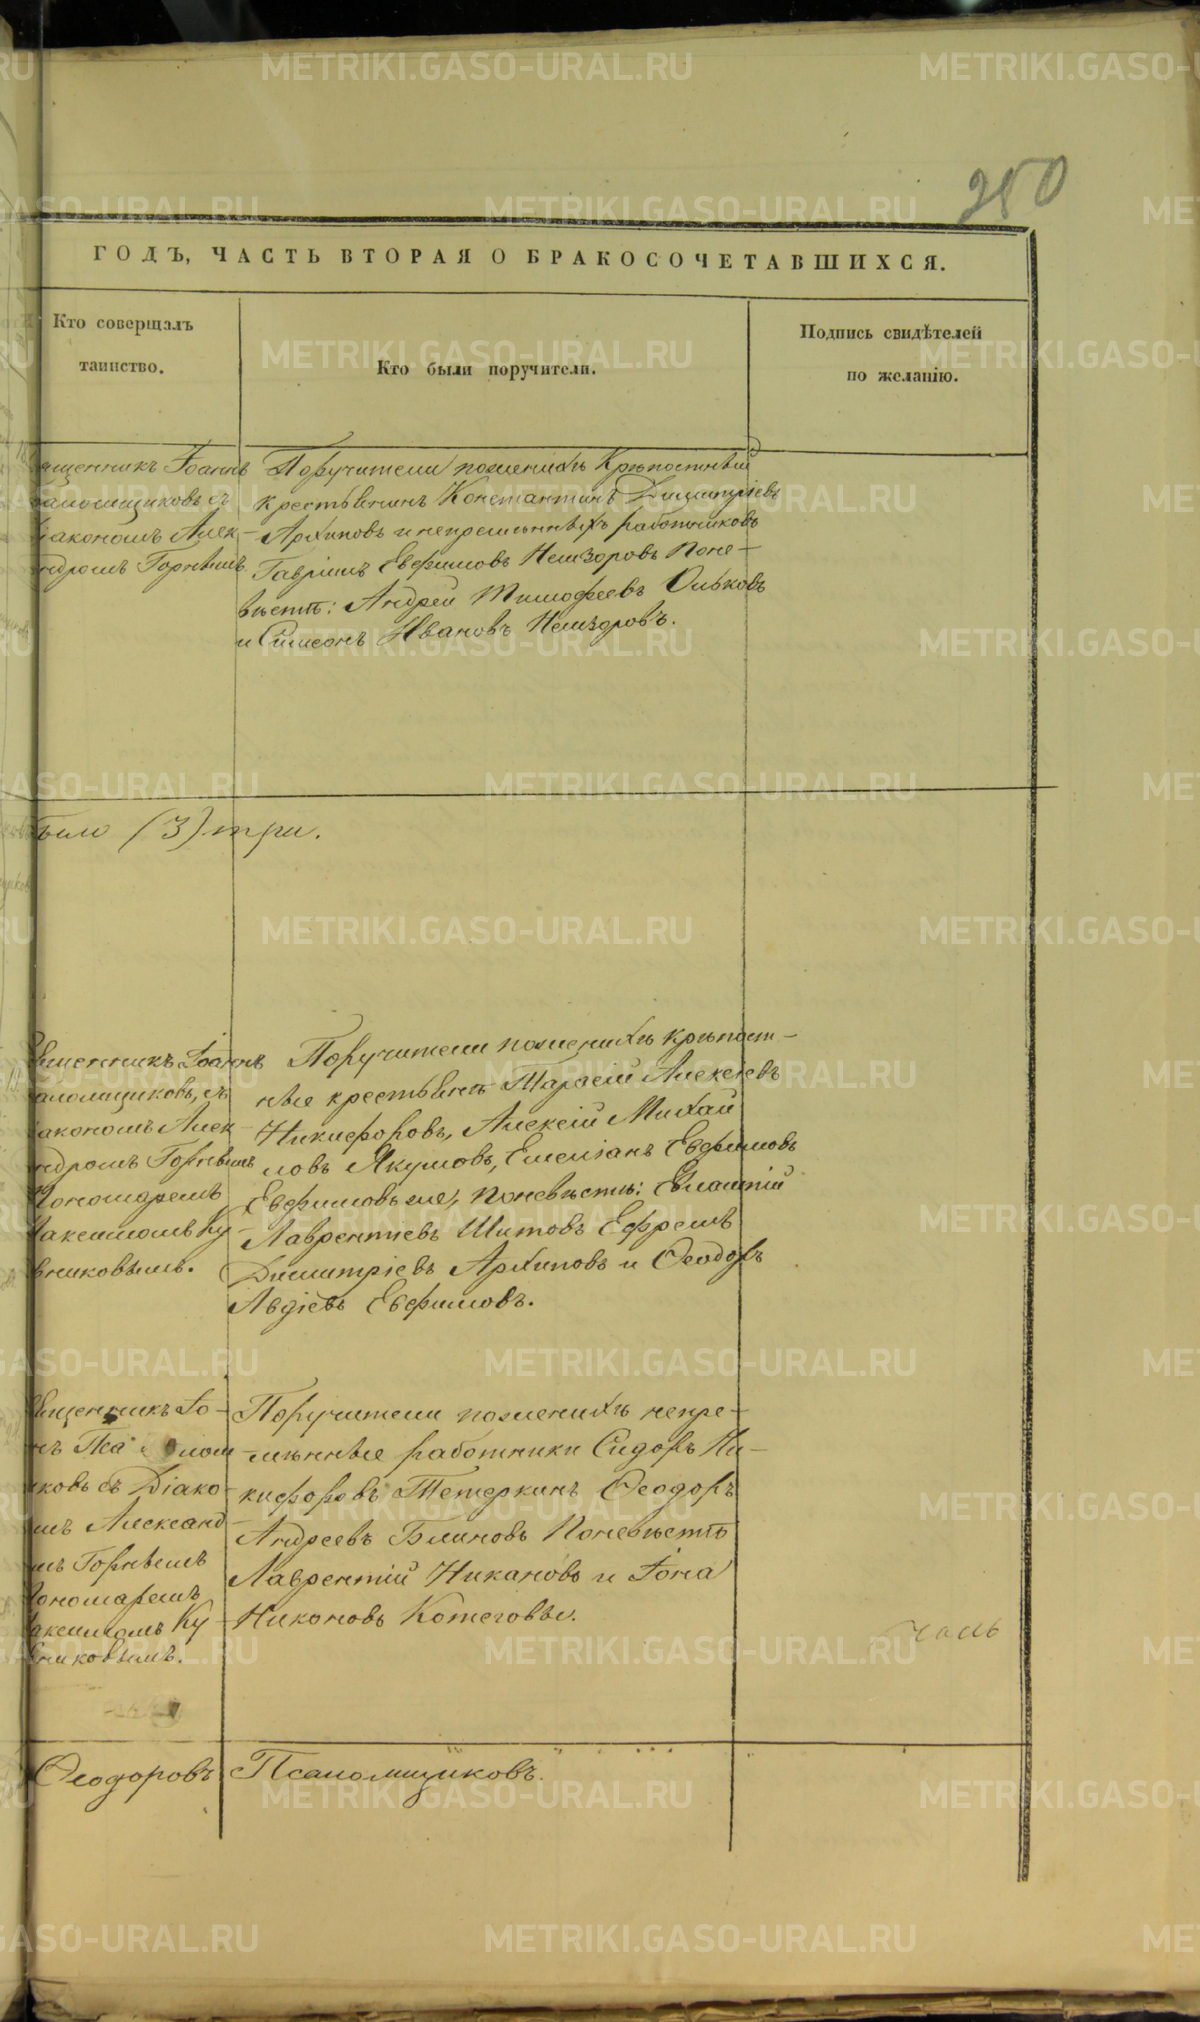 250
ГОДЪ, ЧАСТЬ ВТОРАЯ О БРАКОСОЧЕТАВШИХСЯ.
Кто соверщалъ
таинство.
Кто были поручители.
Подпись свидѣтелей
по желанію.
ященникъ Іоаннъ
саломщиковъ съ
іакономъ Алек-
ндромъ Горнымъ
Поручители поженихѣ Крѣпостный
крестьянинъ Константинъ Димитріевъ
Архиповъ и непремѣнныхъ работниковъ
Гавріилъ Евфимовъ Немзоровъ Поне-
вѣстѣ: Андрей Тимофеевъ Ольковъ
и Симеонъ Ивановъ Немзоровъ.
было (3) три.
вященникъ Іоаннъ
саломщиковъ, съ
іакономъ Алек-
ндромъ Горнымъ
Пономаремъ
Максимомъ Ку-
вниковымъ.
Поручители поженихѣ крѣпост-
ные крестьяне Тарасій Алексѣевъ
Никифоровъ, Алексій Михай
ловъ Якумовъ, Емеліанъ Евфимовъ
Евфимовы же, поневѣстѣ: Евлампій
Лаврентіевъ Шитовъ Ефремъ
Димитріевъ Архиповъ и Ѳеодоръ
Авдіевъ Евфимовъ.
вященникъ Іо-
нъ Пса лом
иковъ съ Діако-
мъ Александ-
мъ Горнымъ
Пономаремъ
Максимомъ Ку-
вниковымъ.
Поручители поженихѣ непре-
мѣнные работники Сидоръ Ни-
кифоровъ Тетеркинъ Ѳеодоръ
Андреевъ Блиновъ Поневѣстѣ
Лаврентій Никановъ и Іона
Никоновъ Котеговы.
Ѳеодоровъ Псаломщиковъ.
METRIKI.GASO-URAL.RU